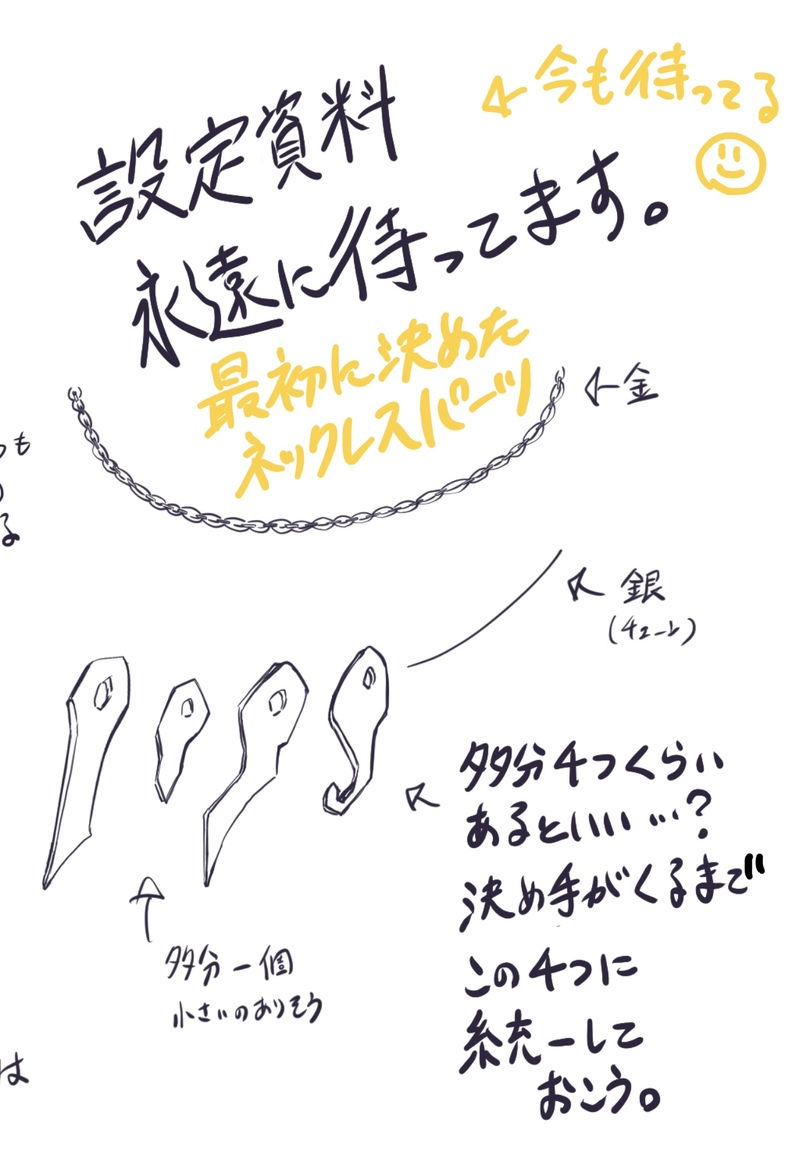 ←今も待ってる
設定資料
永遠に待ってます。
最初に決めた
ネックレスパーツ
←金
も
る
銀
(チェーン)
多分4つくらい
あるといい…?
決め手がくるまで
この4つに
統一して
おこう。
多分一個
小さいのありそう
は